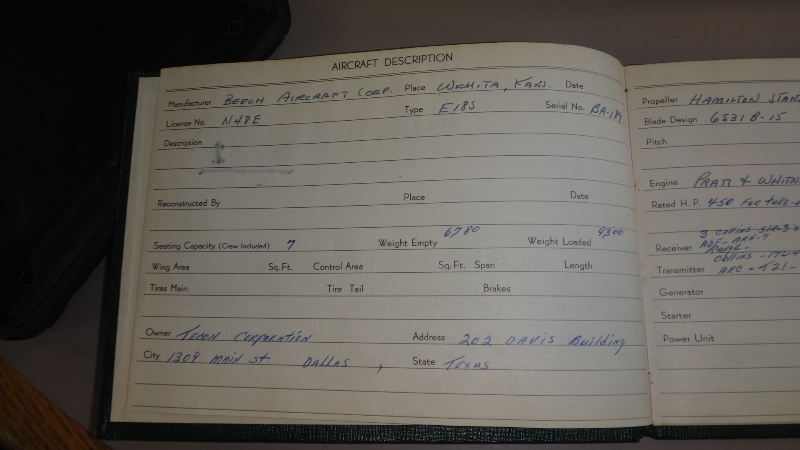 AIRCRAFT DESCRIPTION
Manufacturer BEECH AIRCRAFT CORP. Place WICHITA, KANS. Date
License No. N48E Type E18S Serial No. BA-189
Description
Reconstructed By Place Date
Seating Capacity (Crew Included) 7 Weight Empty 6780 Weight Loaded 9300
Wing Area Sq. Ft. Control Area Sq. Ft. Span Length
Tires Main Tire Tail Brakes
Owner TECON CORPORATION Address 202 DAVIS Building
City 1309 MAIN St DALLAS, State TEXAS
Propeller HAMILTON STAN
Blade Design 6531 B-15
Pitch
Engine PRATT & WHITN
Rated H.P. 450 For take-o
3 Collins
Receiver ADF-ARN-7
Transmitter Collins
ARC-T21-
Generator
Starter
Power Unit